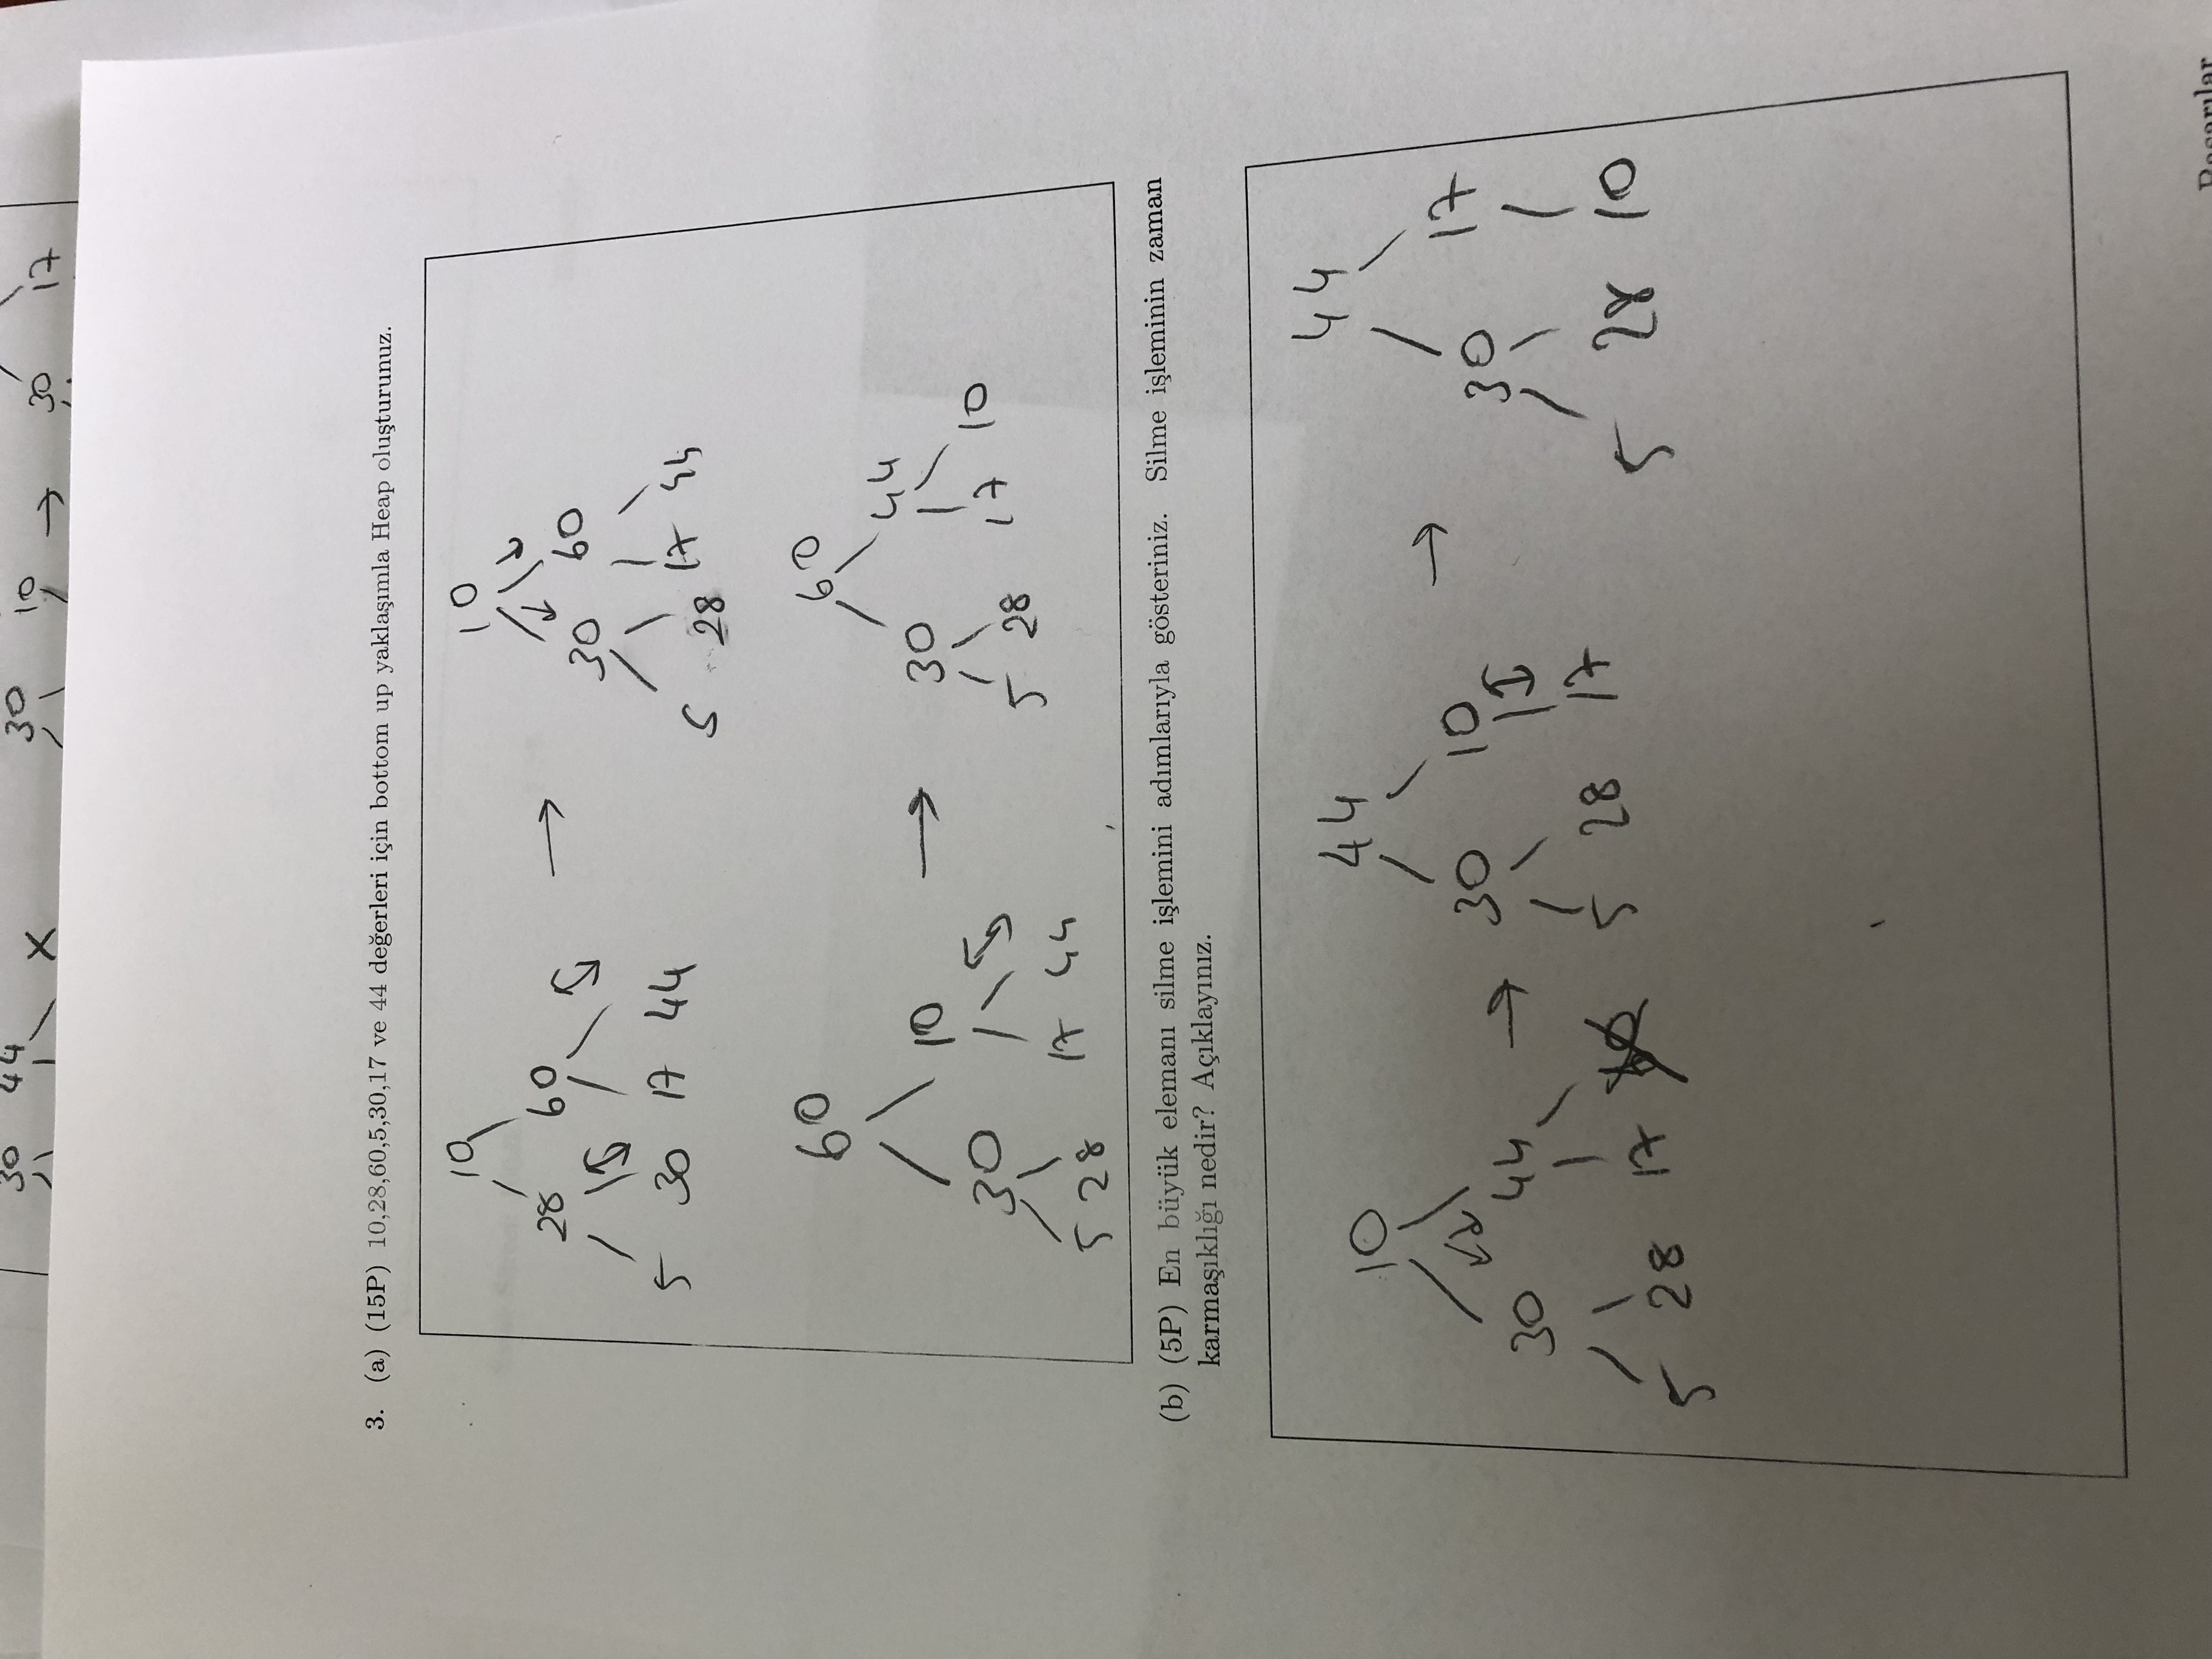 30 44 X 30 10 → 30 17
3. (a) (15P) 10,28,60,5,30,17 ve 44 değerleri için bottom up yaklaşımla Heap oluşturunuz.
10
28 60
5 30 17 44
→
10
30 60
5 28 17 44
60
30 10
5 28 17 44
→
60
30 44
5 28 17 10
(b) (5P) En büyük elemanı silme işlemini adımlarıyla gösteriniz. Silme işleminin zaman
karmaşıklığı nedir? Açıklayınız.
10
30 44
5 28 17 60
→
44
30 10
5 28 17
→
44
30 17
5 28 10
Başarılar